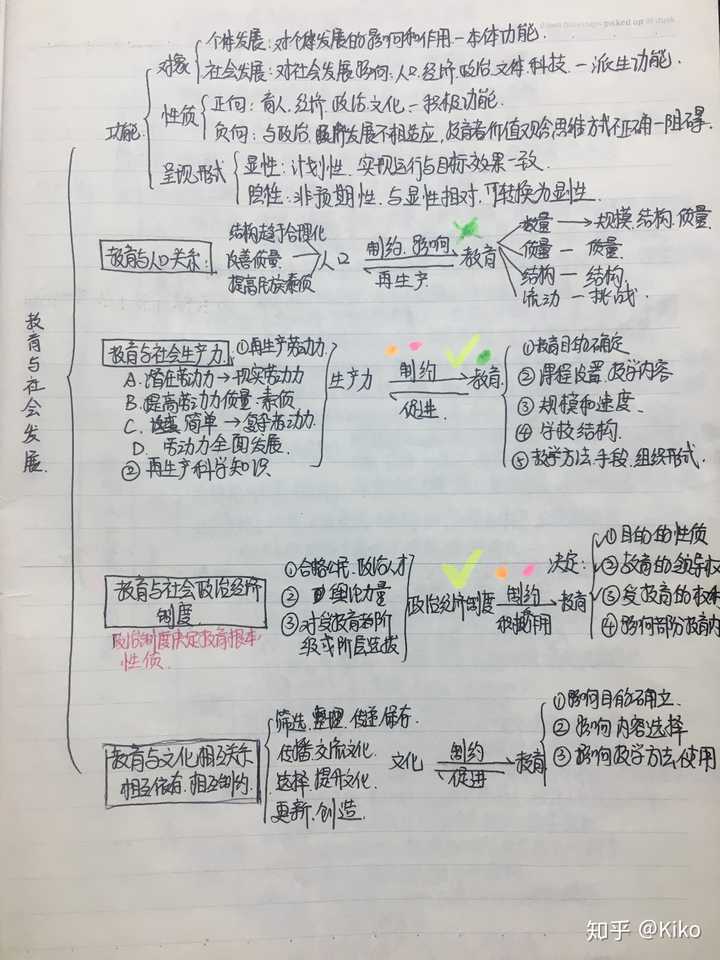 picked up at dusk
个体发展：对个体发展的影响和作用一本体功能.
对象
社会发展：对社会发展影响：人口.经济.政治.文体.科技.一派生功能.
功能
性质
正向：育人.经济.政治文化.一积极功能.
负向：与政治.发展不相适应，教育者价值观念思维方式不正确一阻碍.
呈现形式
显性：计划性.实现运行与目标效果一致.
隐性：非预期性.与显性相对，可转换为显性.
教育与社会发展.
教育与人口关系：
结构趋于合理化
改善质量
提高民族素质
人口
制约.影响
再生产
教育
数量 → 规模.结构.质量.
质量一质量.
结构一结构.
流动一挑战.
教育与社会生产力.
①再生产劳动力.
A.潜在劳动力→现实劳动力
B.提高劳动力质量.素质
C.简单→复杂劳动力.
D.劳动力全面发展.
②再生产科学知识
生产力
制约
促进.
教育.
①教育目的确定
②课程设置.教学内容
③规模和速度.
④学校结构.
⑤教学方法.手段.组织形式.
教育与社会政治经济制度.
政治制度决定教育根本性质.
①合格公民.政治人才
②舆论力量
③对受教育者阶级或阶层选拔
政治经济制度
制约
积极作用
教育
决定：
①目的的性质
②教育的领导权
③受教育的权利
④影响部分教育内
教育与文化相互关系
相互依存.相互制约.
筛选.整理.传递.保存.
传播.交流文化.
选择.提升文化.
更新.创造.
文化
制约
促进
教育
①影响目的确立.
②影响内容选择
③影响教学方法使用
知乎 @Kiko